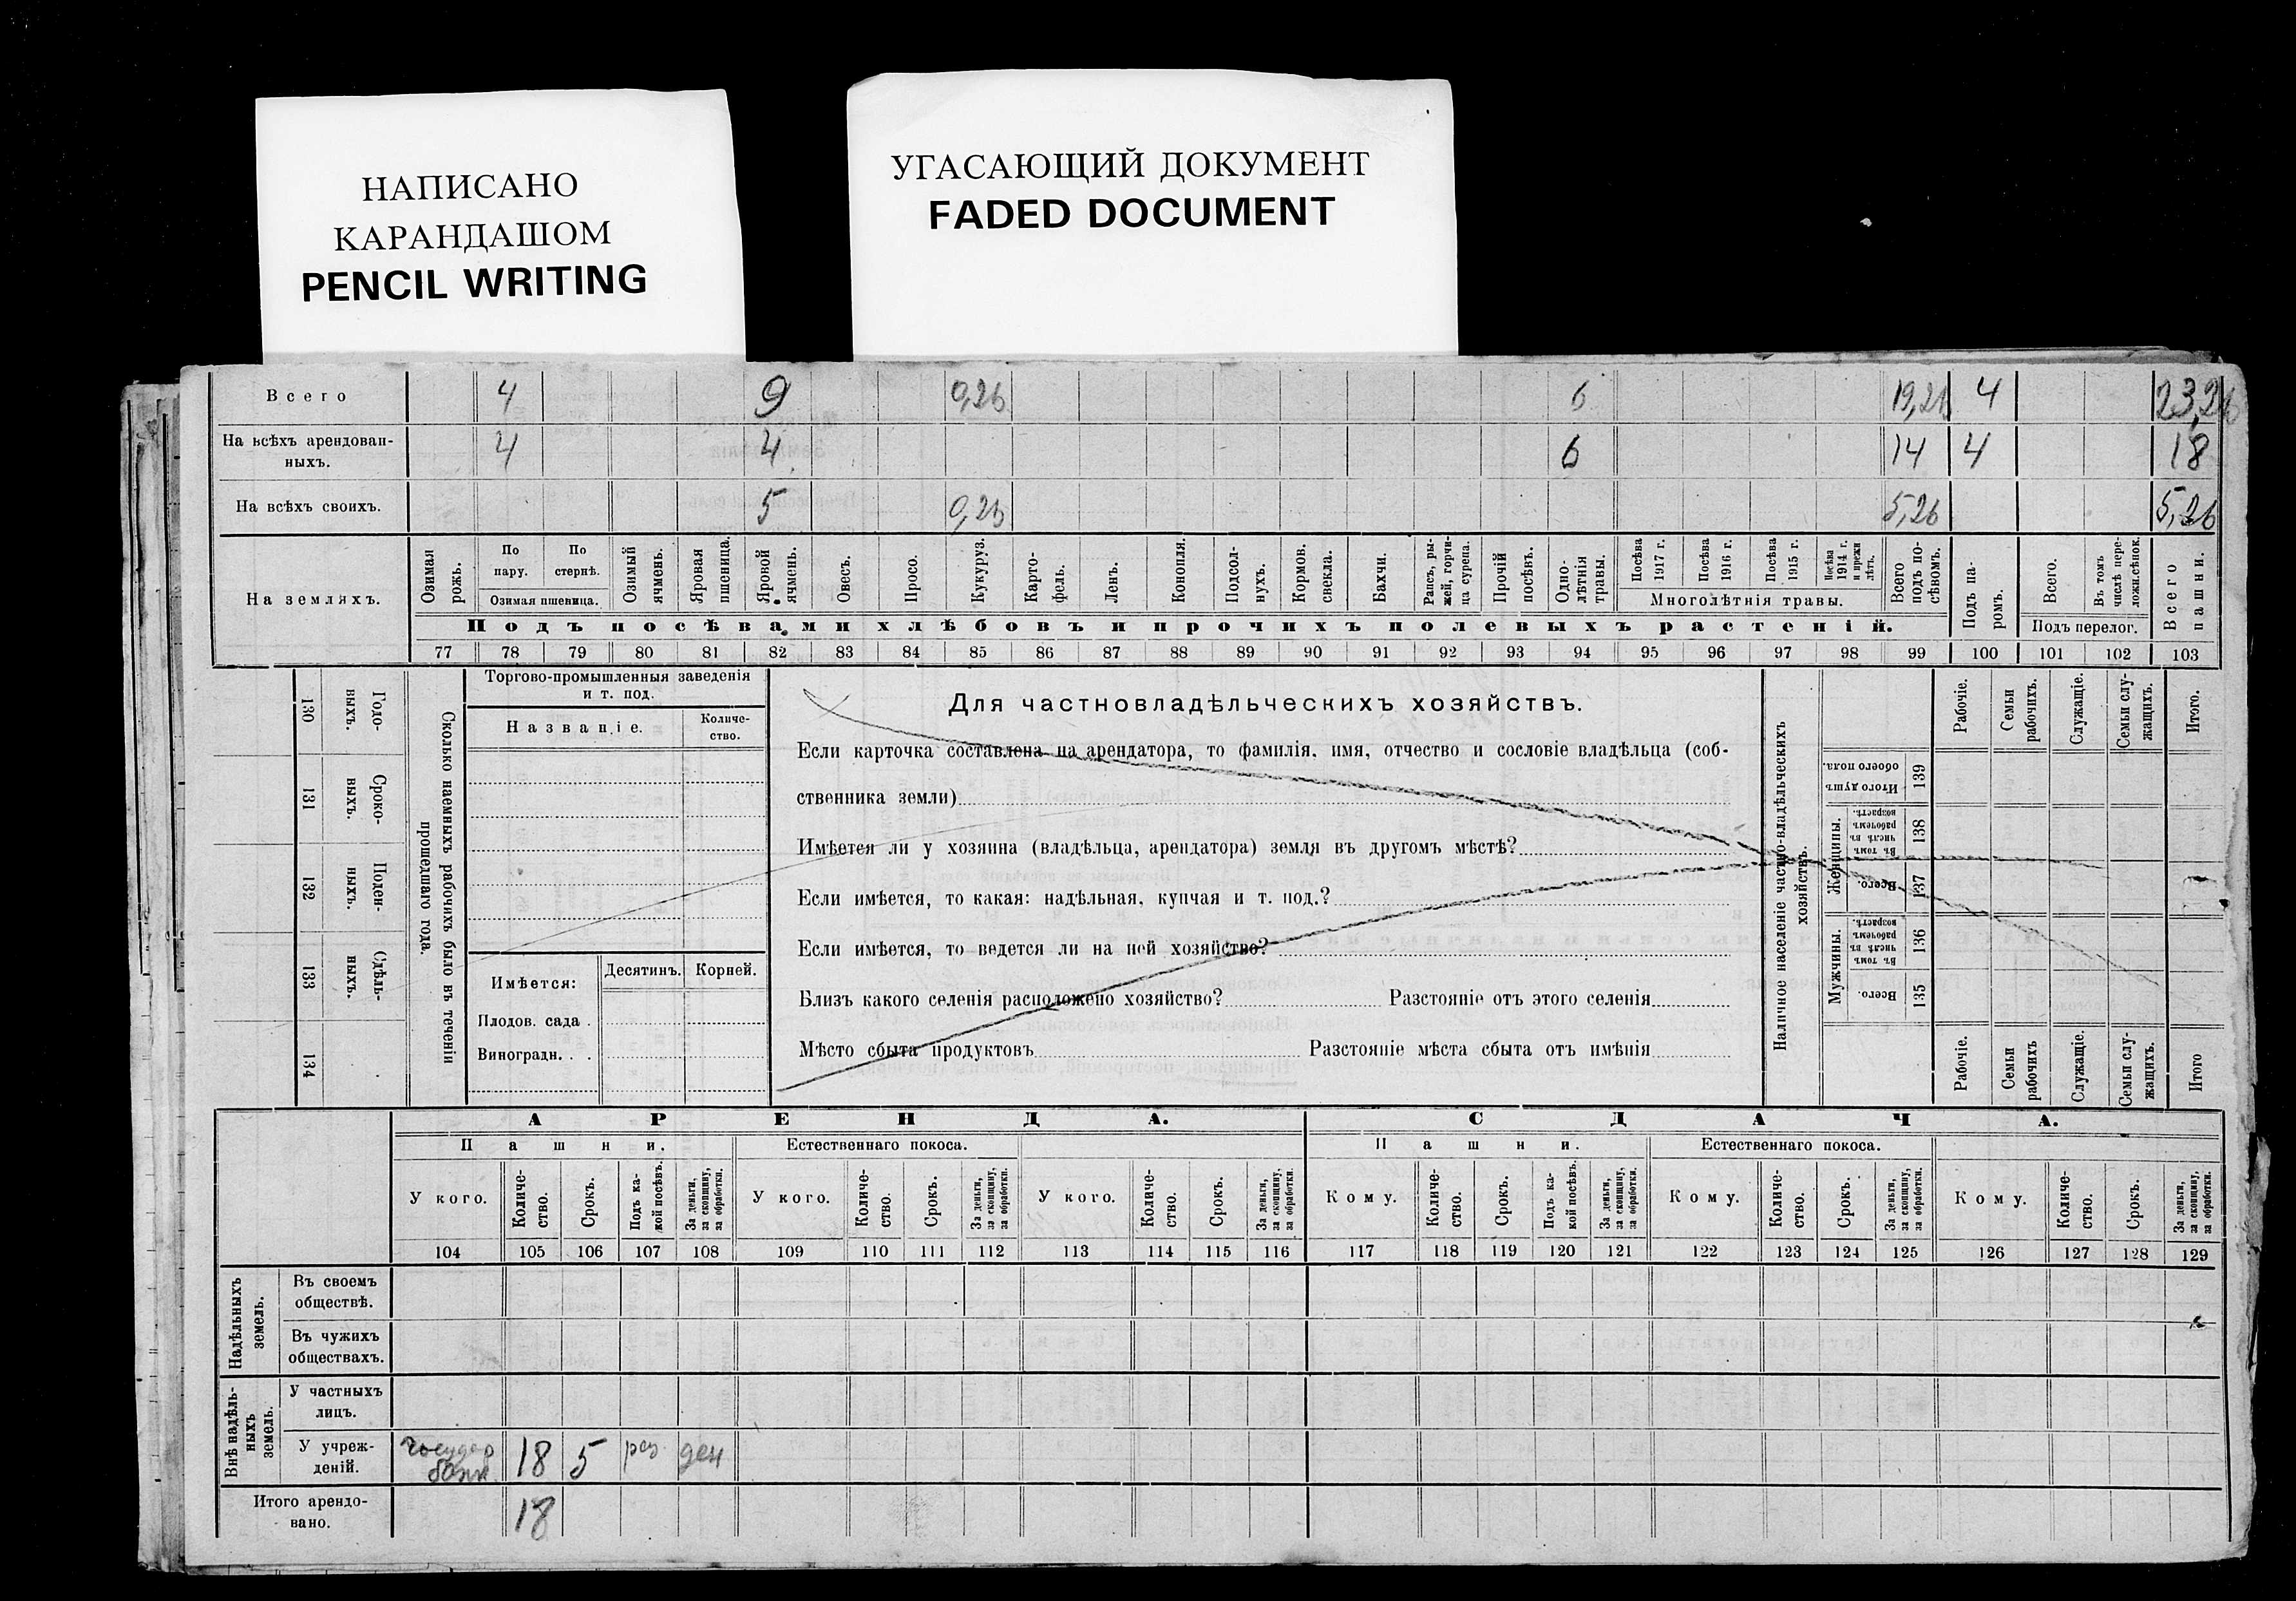 НАПИСАНО
КАРАНДАШОМ
PENCIL WRITING
УГАСАЮЩИЙ ДОКУМЕНТ
FADED DOCUMENT
Всего 4 9 0,26 6 19,26 4 23,26
На всѣхъ арендован-
ныхъ. 4 4 6 14 4 18
На всѣхъ своихъ. 5 0,26 5,26 5,26
На земляхъ.
Озимая рожь.
По пару.
По стернѣ.
Озимая пшеница.
Озимый ячмень.
Яровая пшеница.
Яровой ячмень.
Овесъ.
Просо.
Кукуруз.
Карто-
фель.
Ленъ.
Конопля.
Подсол-
нухъ.
Кормов. свекла.
Бахчи.
Рапсъ, ры-
жей, горчи-
ца сурепа.
Прочій посѣвъ.
Одно-
лѣтнія травы.
Посѣва 1917 г.
Посѣва 1916 г.
Посѣва 1915 г.
Посѣва 1914 г. и прежн лѣтъ.
Многолѣтнія травы.
Всего подъ по-
сѣвомъ.
Подъ па-
ромъ.
Всего.
Въ томъ числѣ пере-
ложн.сѣнок.
Подъ перелог.
Всего пашни.
Подъ посѣвами хлѣбовъ и прочихъ полевыхъ растеній.
77 78 79 80 81 82 83 84 85 86 87 88 89 90 91 92 93 94 95 96 97 98 99 100 101 102 103
130 Годо-
выхъ.
131 Сроко-
ныхъ.
132 Поден-
ныхъ.
133 Сдѣль-
ныхъ.
134
Сколько наемныхъ рабочихъ было въ теченіи
прошедшаго года.
Торгово-промышленныя заведенія
и т. под.
Названіе.
Количе-
ство.
Имѣется: Десятинъ. Корней.
Плодов. сада .
Виноградн. . .
Для частновладѣльческихъ хозяйствъ.
Если карточка составлена на арендатора, то фамилія, имя, отчество и сословіе владѣльца (соб-
ственника земли)
Имѣется ли у хозяина (владѣльца, арендатора) земля въ другомъ мѣстѣ?
Если имѣется, то какая: надѣльная, купчая и т. под.?
Если имѣется, то ведется ли на ней хозяйство?
Близъ какого селенія расположено хозяйство? Разстояніе отъ этого селенія
Мѣсто сбыта продуктовъ Разстояніе мѣста сбыта отъ имѣнія
Наличное населеніе частно-владѣльческихъ
хозяйствъ.
Рабочіе.
Семьи рабочихъ.
Служащіе.
Семьи слу-
жащихъ.
Итого.
Итого душъ обоего пола. 139
Женщины.
Въ томъ числѣ въ рабочемъ возрастѣ. 138
Всего. 137
Мужчины.
Въ томъ числѣ въ рабочемъ возрастѣ. 136
Всего. 135
Рабочіе.
Семьи рабочихъ
Служащіе.
Семьи слу-
жащихъ.
Итого
АРЕНДА. СДАЧА.
Пашни. Естественнаго покоса. Пашни. Естественнаго покоса.
У кого.
Количе-
ство.
Срокъ.
Подъ ка-
кой посѣвъ.
За деньги, за скопщину, за обработки.
У кого.
Количе-
ство.
Срокъ.
За деньги, за скопщину, за обработки.
У кого.
Количе-
ство.
Срокъ.
За деньги, за скопщину, за обработки.
Кому.
Количе-
ство.
Срокъ.
Подъ ка-
кой посѣвъ.
За деньги, за скопщину, за обработки.
Кому.
Количе-
ство.
Срокъ.
За деньги, за скопщину, за обработки.
Кому.
Количе-
ство.
Срокъ.
За деньги, за скопщину, за обработки.
104 105 106 107 108 109 110 111 112 113 114 115 116 117 118 119 120 121 122 123 124 125 126 127 128 129
Надѣльныхъ земель.
Въ своемъ
обществѣ.
Въ чужихъ
обществахъ.
Внѣ надѣль-
ныхъ земель.
У частныхъ
лицъ.
У учреж-
деній. Государ банк 18 5 раз ден
Итого арендо-
вано. 18